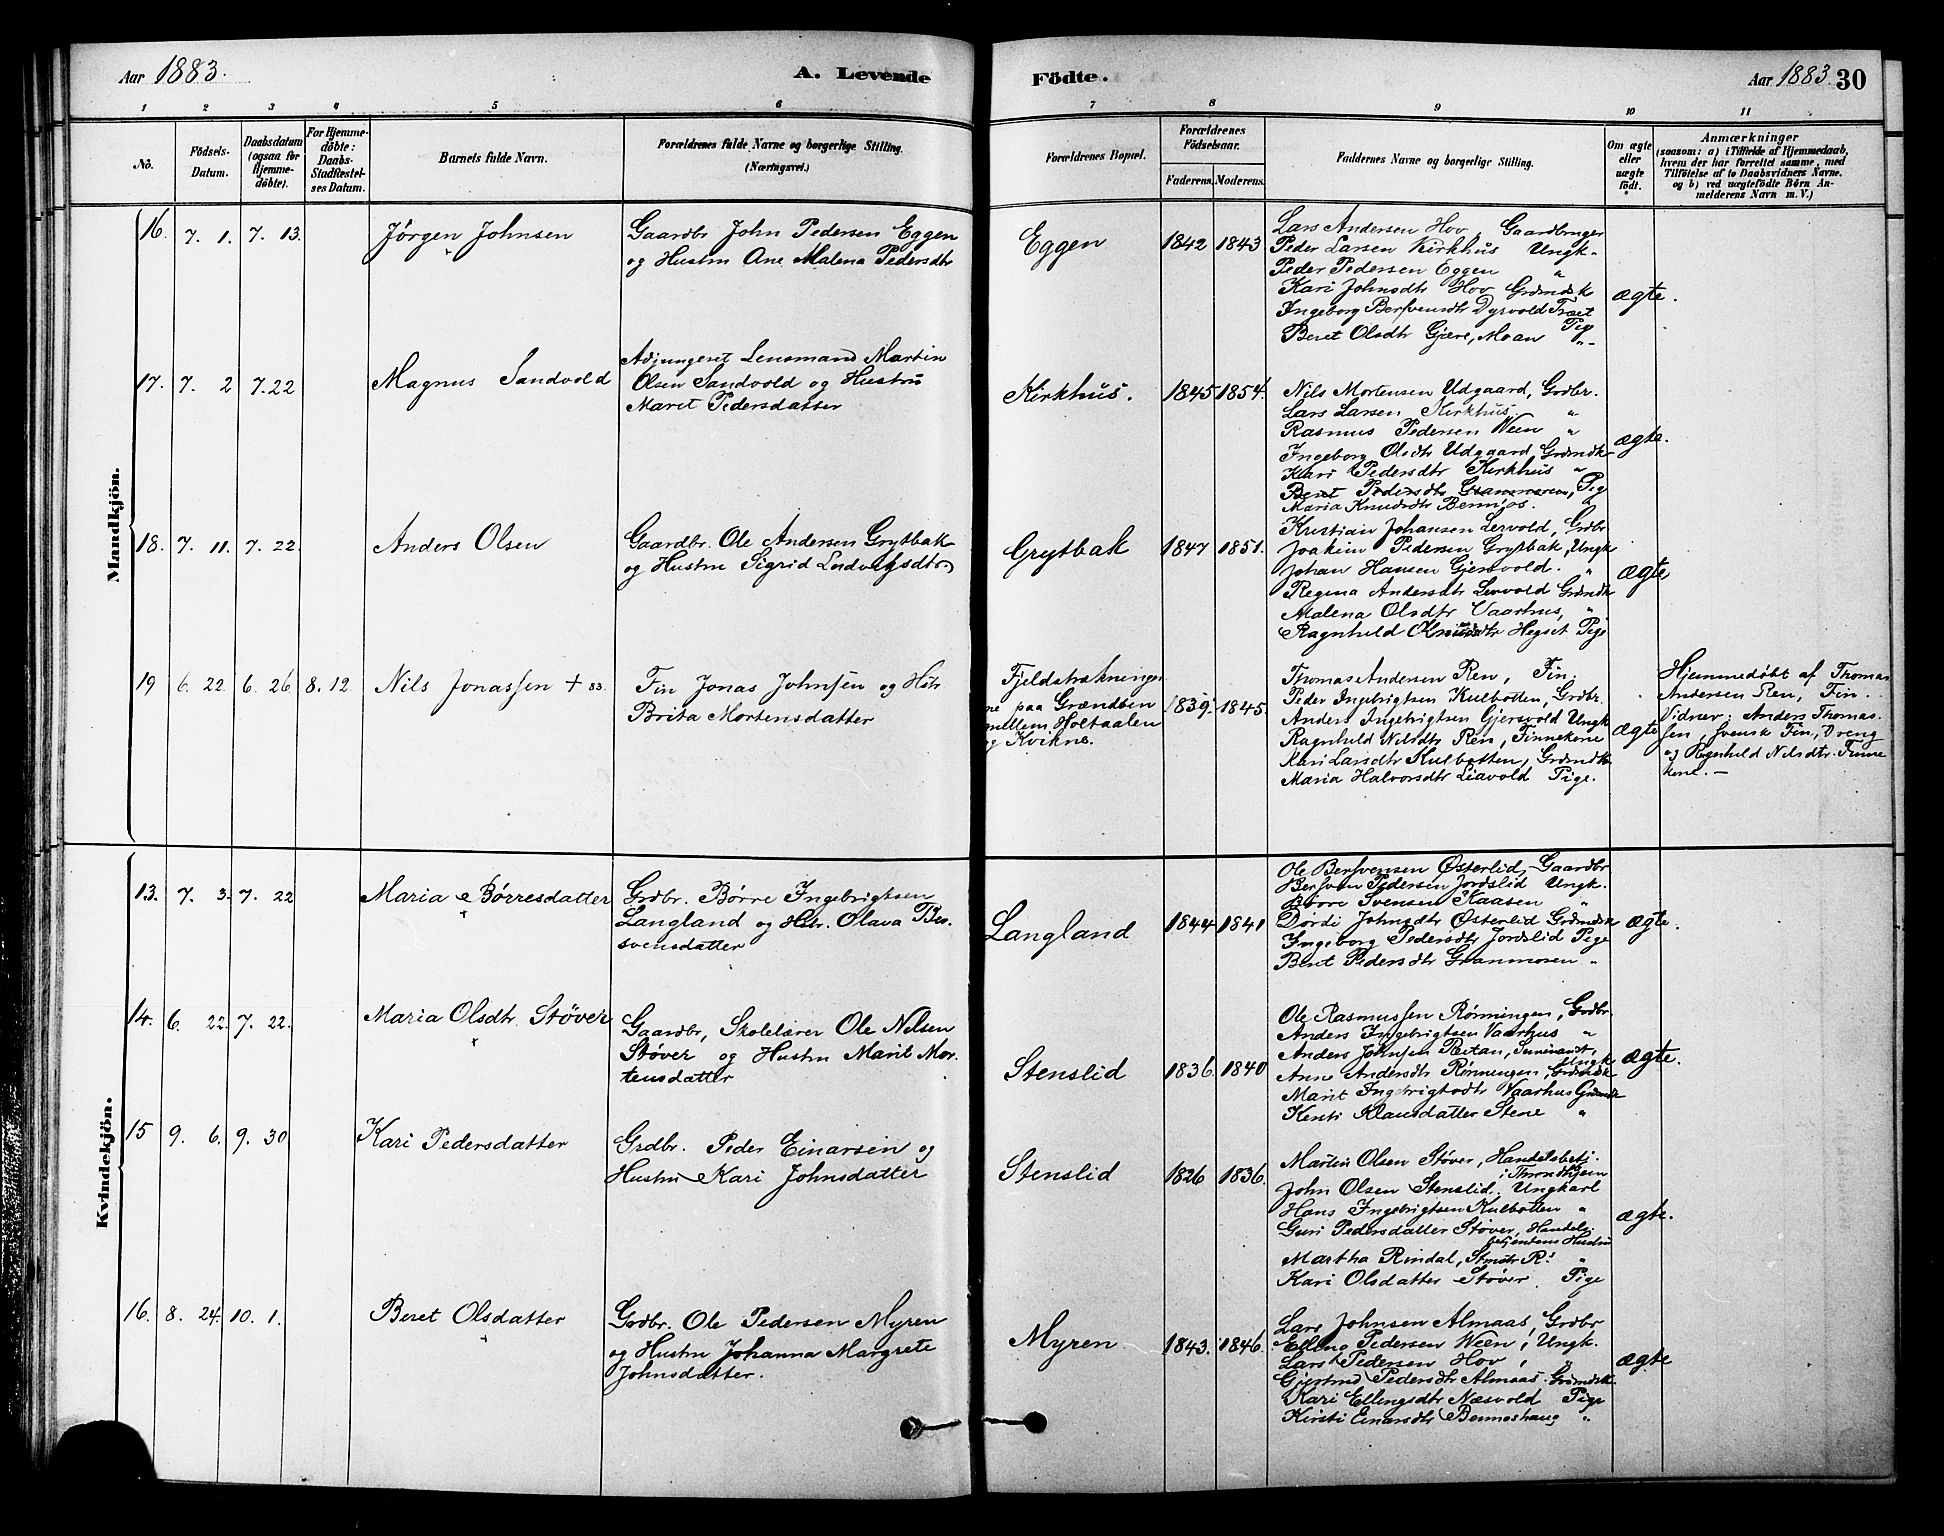 Aar 1883. A. Levende Fødte. Aar 1883. 30
1 2 3 4 5 6 7 8 9 10 11
No.
Fødsels-
Datum.
Daabsdatum
(ogsaa for
Hjemme-
døbte).
For Hjemme-
døbte:
Daabs-
Stadfæstel-
ses Datum.
Barnets fulde Navn.
Forældrenes fulde Navne og borgerlige Stilling.
(Næringsvei.)
Forældrenes Bopæl.
Forældrenes
Fødselsaar.
Faderens. Moderens.
Faddernes Navne og borgerlige Stilling.
Om ægte
eller
uægte
født.
Anmærkninger
(saasom: a) i Tilfælde af Hjemmedaab,
hvem der har forrettet samme, med
Tilføielse af to Daabsvidners Navne,
og b) ved uægtefødte Børn An-
melderens Navn m. V.)
Mandkjön.
16. 7. 1. 7. 13. Jørgen Johnsen
Gaardbr John Pedersen Eggen
og Hustru Ane Malena Pedersdtr
Eggen 1842 1843
Lars Andersen Hov, Gaardbruger
Peder Larsen Kirkhus Ungk.
Peder Pedersen Eggen "
Kari Johnsdtr Hov Grdmdsk
Ingeborg Bersvensdtr Dyrvold Træet
Beret Olsdtr Gjære, Moan Pig
ægte.
17. 7. 2 7. 22 Magnus Sandvold
Adjungeret Lensmand Martin
Olsen Sandvold og Hustru
Maret Pedersdatter
Kirkhus. 1845 1854.
Nils Mortensen Udgaard, Grdbr.
Lars Larsen Kirkhus. "
Rasmus Pedersen Ween "
Ingeborg Olsdtr Udgaard, Grdmdk
Kari Pedersdtr Kirkhus "
Beret Pedersdtr Granmoren, Pig
Maria Knudsdtr Bennøs.
ægte.
18. 7. 11. 7. 22. Anders Olsen
Gaardbr. Ole Andersen Grytbak
og Hustru Sigrid Ludvigsdtr
Grytbak 1847 1851.
Kristian Johansen Lervold, Grdbr
Joakim Pedersen Grytbak, Ungk
Johan Hansen Gjersvold. "
Regina Andersdtr Lervold Grdmdk
Malena Olsdtr Vaarhus, "
Ragnhild Knudsdtr Hegset Pige
ægte
19 6. 22. 6. 26. 8. 12. Nils Jonassen + 83.
Fin Jonas Johnsen og Hstr
Brita Mortensdatter
Fjeldstrækninger
ne paa Grændsen
mellem Holtaalen
og Kvikne.
1839. 1845.
Thomas Andersen Ren, Fin
Peder Ingebrigtsen Kulbotten, Grdbr
Anders Ingebrigtsen Gjersvold Ungk
Ragnhild Nilsdtr Ren, Finnekone
Kari Larsdtr Kulbotten, Grdmdk
Maria Halvorsdtr Liavold Pige.
ægte
Hjemmedøbt af Thomas
Andersen Ren, Fin.
Vidner: Anders Thomas-
sen, svensk Fin, Dreng
og Ragnhild Nilsdtr. Finne
kone. —
Kvindekjön.
13. 7. 3. 7. 22 Maria Børresdatter
Grdbr. Børre Ingebrigtsen
Langland og Hstr. Olava Ber-
svensdatter
Langland 1844 1841
Ole Bersvensen Østerlid, Gaardbr
Bersven Pedersen Jordslid Ungk.
Børre Svensen Kaasen "
Dørdi Johnsdtr Østerlid Grdmdsk
Ingeborg Pedersdtr Jordslid Pige
Beret Pedersdtr Granmoren "
ægte.
14. 6. 22. 7. 22. Maria Olsdtr. Støver
Gaardbr, Skolelærer Ole Nilsen
Støver og Hustru Marit Mor-
tensdatter
Stenslid 1836. 1840
Ole Rasmussen Rønningen, Grdbr.
Anders Ingebrigtsen Vaarhus "
Anders Johnsen Reitan, Seminarist,
Ungk
Ane Andersdtr Rønningen, Grdmdsk
Marit Ingebrigtsdtr Vaarhus Grdmdk
Kirsti Klausdatter Stene "
ægte.
15 9. 6. 9. 30 Kari Pedersdatter
Grdbr. Peder Einarsen og
Hustru Kari Johnsdatter
Stenslid 1826 1836.
Martin Olsen Støver, Handelsbetj.
i Throndhjem
John Olsen Stenslid. Ungkarl
Hans Ingebrigtsen Kulbotten "
Guri Pedersdatter Støver, Handels-
betjentens Hustru
Martha Rindal,
Kari Olsdatter Støver. Pige
ægte.
16. 8. 24. 10. 1. Beret Olsdatter
Grdbr. Ole Pedersen Myren
og Hustru Johanna Margrete
Johnsdatter.
Myren 1843. 1846.
Lars Johnsen Almaas, Grdbr
Elling Pedersen Ween, Ungk.
Lars Pedersen Hov, "
Gjertrud Pedersdtr Almaas. Grdmdsk
Kari Ellingsdtr Næsvold Pige
Kirsti Einarsdtr Bennoshaug "
ægte